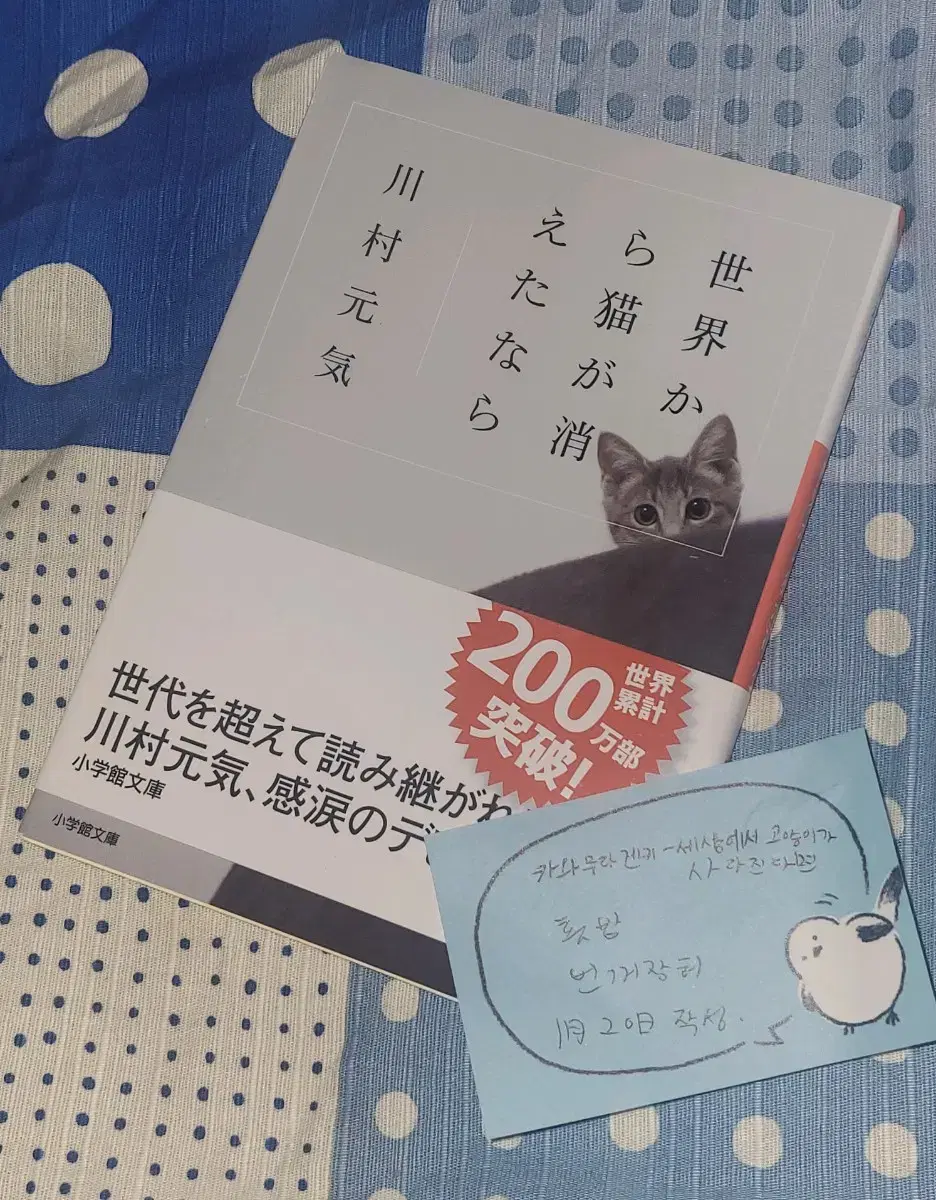 世界か
ら猫が消
えたなら
川村元気
世界
累計
200万部
突破!
世代を超えて読み継がれ
川村元気、感涙のデ
小学館文庫
小学館文庫
카와무라 겐키 - 세상에서 고양이가
사라진다면
번개장터
1月 20日 작성.